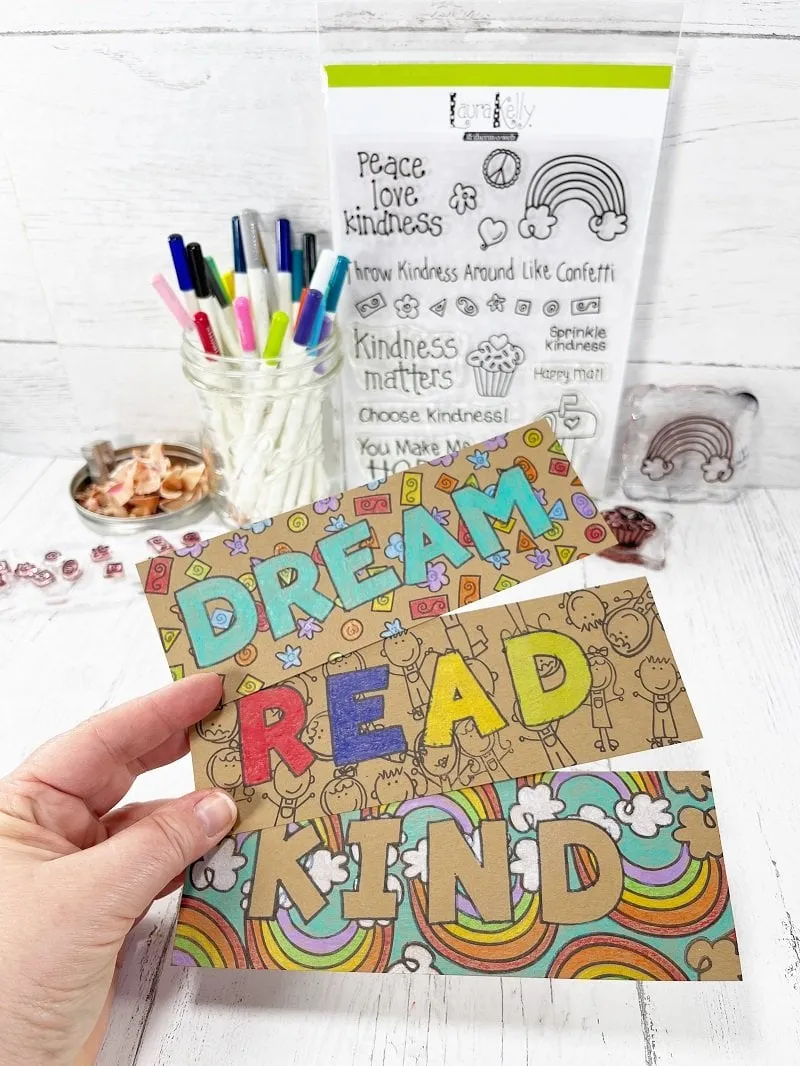 Laura Kelly
Peace
love
kindness
Throw Kindness Around Like Confetti
Kindness
matters
Sprinkle
kindness
Happy Mail
Choose Kindness!
You Make Me
DREAM
READ
KIND